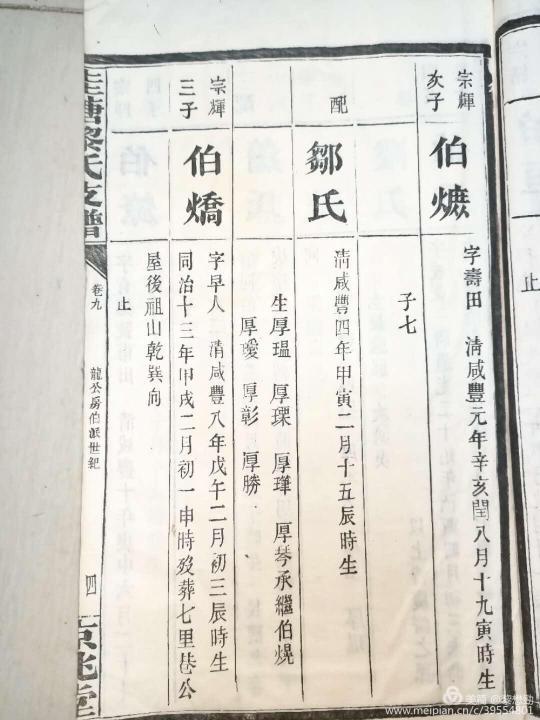 宗輝
次子
伯爊
字壽田 清咸豐元年辛亥閏八月十九寅時生
子七
配
鄒氏
清咸豐四年甲寅二月十五辰時生
生厚瑥 厚瑮 厚瑋 厚琴承繼伯燒
厚瑷 厚彰 厚勝
宗輝
三子
伯燆
字早人 清咸豐八年戊午二月初三辰時生
同治十三年甲戌二月初一申時歿葬七里巷公
屋後祖山乾巽向
止
塘黎氏支譜
卷九
龍公房伯派世紀
四
京兆堂
止
美篇
www.meipian.cn/c/39554801